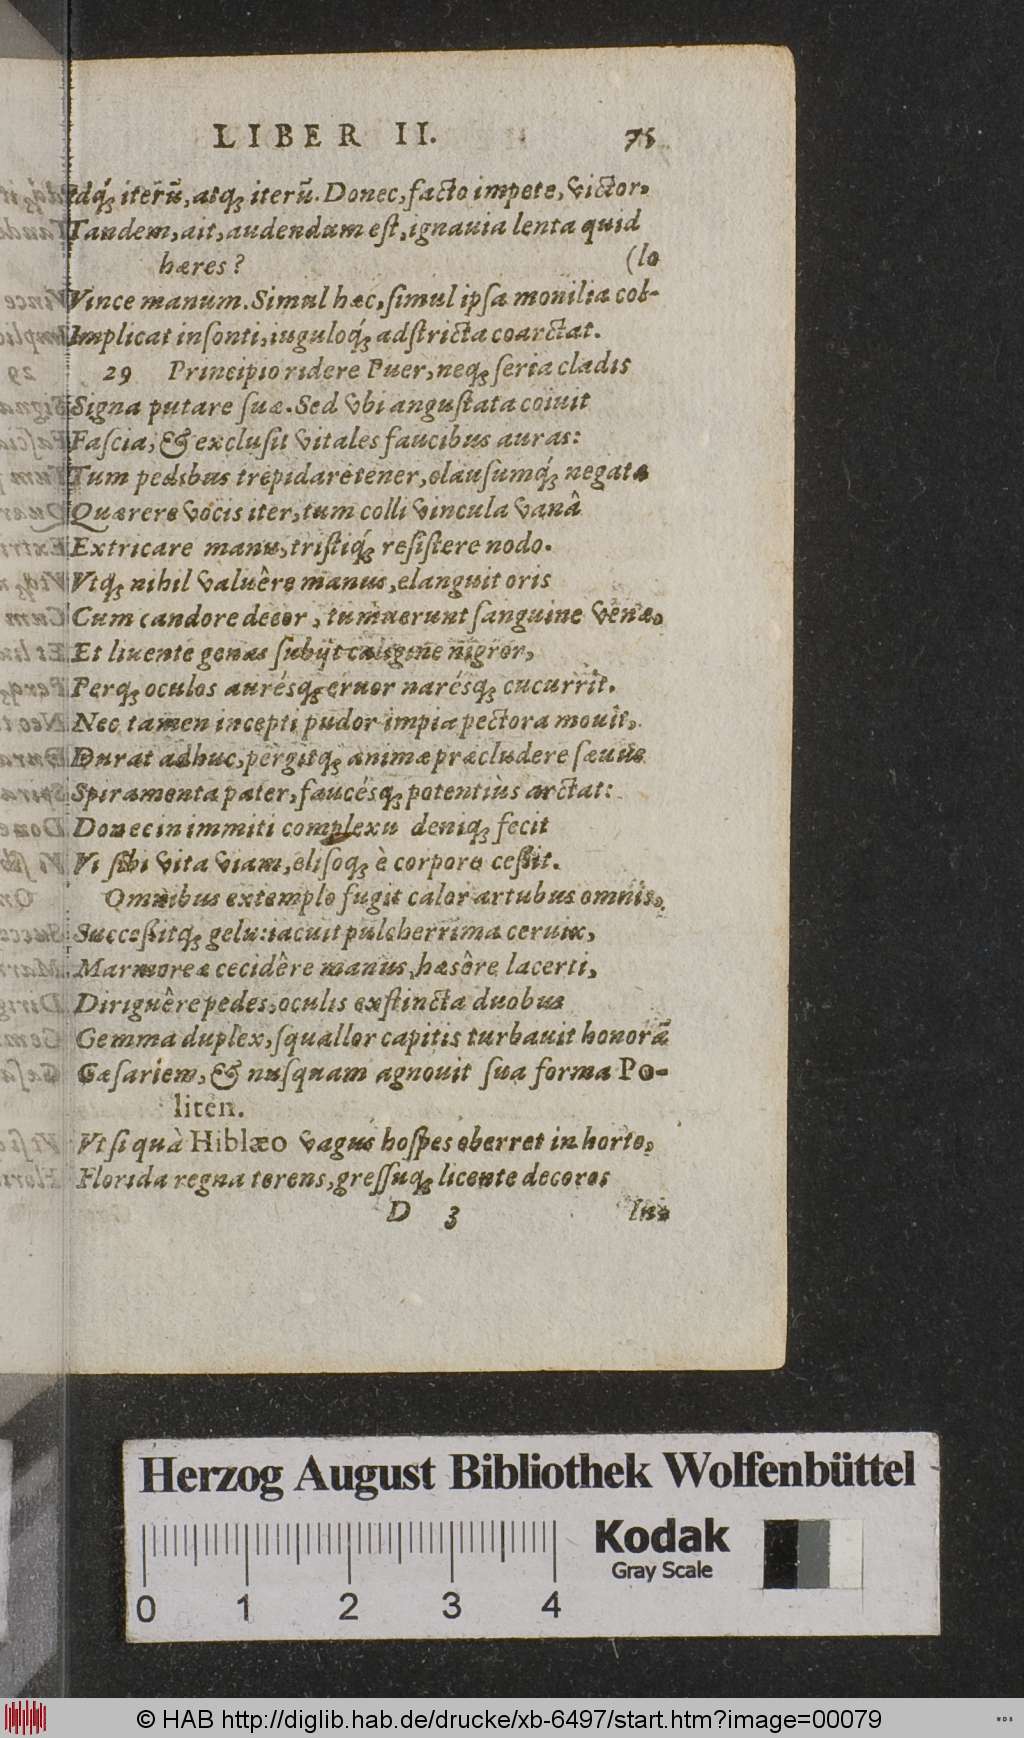 LIBER II. 75
Idq́ꝫ iterũ, atqꝫ iterũ. Donec, facto impete, victor,
Tandem, ait, audendum est, ignauia lenta quid
hæres? (lo
Vince manum. Simul hæc, simul ipsa monilia col-
Implicat insonti, iuguloq́ꝫ adstricta coarctat.
29 Principio ridere Puer, neqꝫ seria cladis
Signa putare suæ. Sed vbi angustata coiuit
Fascia, & exclusit vitales faucibus auras:
Tum pedibus trepidare tener, clausumq́ꝫ negata
Quærere vocis iter, tum colli vincula vanâ
Extricare manu, tristiq́ꝫ resistere nodo.
Vtqꝫ nihil valuêre manus, elanguit oris
Cum candore decor, tumuerunt sanguine venæ,
Et liuente genas subijt caligine nigror,
Perqꝫ oculos aurésqꝫ cruor narésqꝫ cucurrit.
Nec tamen incepti pudor impia pectora mouit,
Durat adhuc, pergitqꝫ animæ præcludere sæuus
Spiramenta pater, faucésqꝫ potentiùs arctat:
Donec in immiti complexu deniqꝫ fecit
Vi sibi vita viam, elisoqꝫ è corpore cessit.
Omnibus extemplo fugit calor artubus omnis,
Successitqꝫ gelu: iacuit pulcherrima ceruix,
Marmoreæ cecidêre manus, hæsêre lacerti,
Diriguêre pedes, oculis exstincta duobus
Gemma duplex, squallor capitis turbauit honorã
Cæsariem, & nusquam agnouit sua forma Po-
liten.
Vt si quà Hiblæo vagus hospes oberret in horto,
Florida regna terens, gressuqꝫ licente decoros
D 3 In-
Herzog August Bibliothek Wolfenbüttel
Kodak
Gray Scale
0 1 2 3 4
© HAB http://diglib.hab.de/drucke/xb-6497/start.htm?image=00079